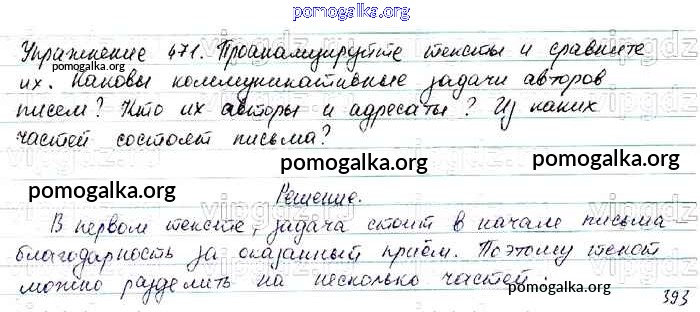 pomogalka.org
Упражнение 471. Проанализируйте тексты и сравните
pomogalka.org
их. Каковы коммуникативные задачи авторов
pomogalka.org
писем? Кто их авторы и адресаты? Из каких
частей состоят письма?
pomogalka.org
pomogalka.org
pomogalka.org
Решение.
В первом тексте, задача стоит в начале письма
благодарность за оказанный приём. Поэтому текст
pomogalka.org
можно разделить на несколько частей.
pomogalka.org
393
pomogalka.org